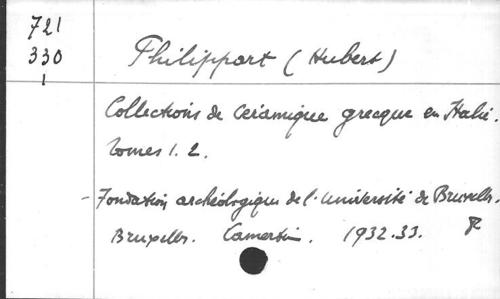 721
330
1
Philippart (Hubert)
Collections de Céramique grecque en Italie.
Tomes 1. 2.
- Fondation archéologique de l'Université de Bruxelles.
Bruxelles. Lamertin. 1932.33.